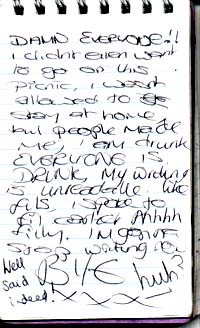 DAMN EVERYONE!!
I didnt even want
to go on this
picnic, I wasnt
allowed to
stay at home
but people made
me, I am drunk
EVERYONE IS
DRUNK, My writing
is unreadable. like
I spoke to
earlier Ahhhh
filly. IM GONNA
stop writing now
Well
said
indeed!
BYE
huh?
xxxx